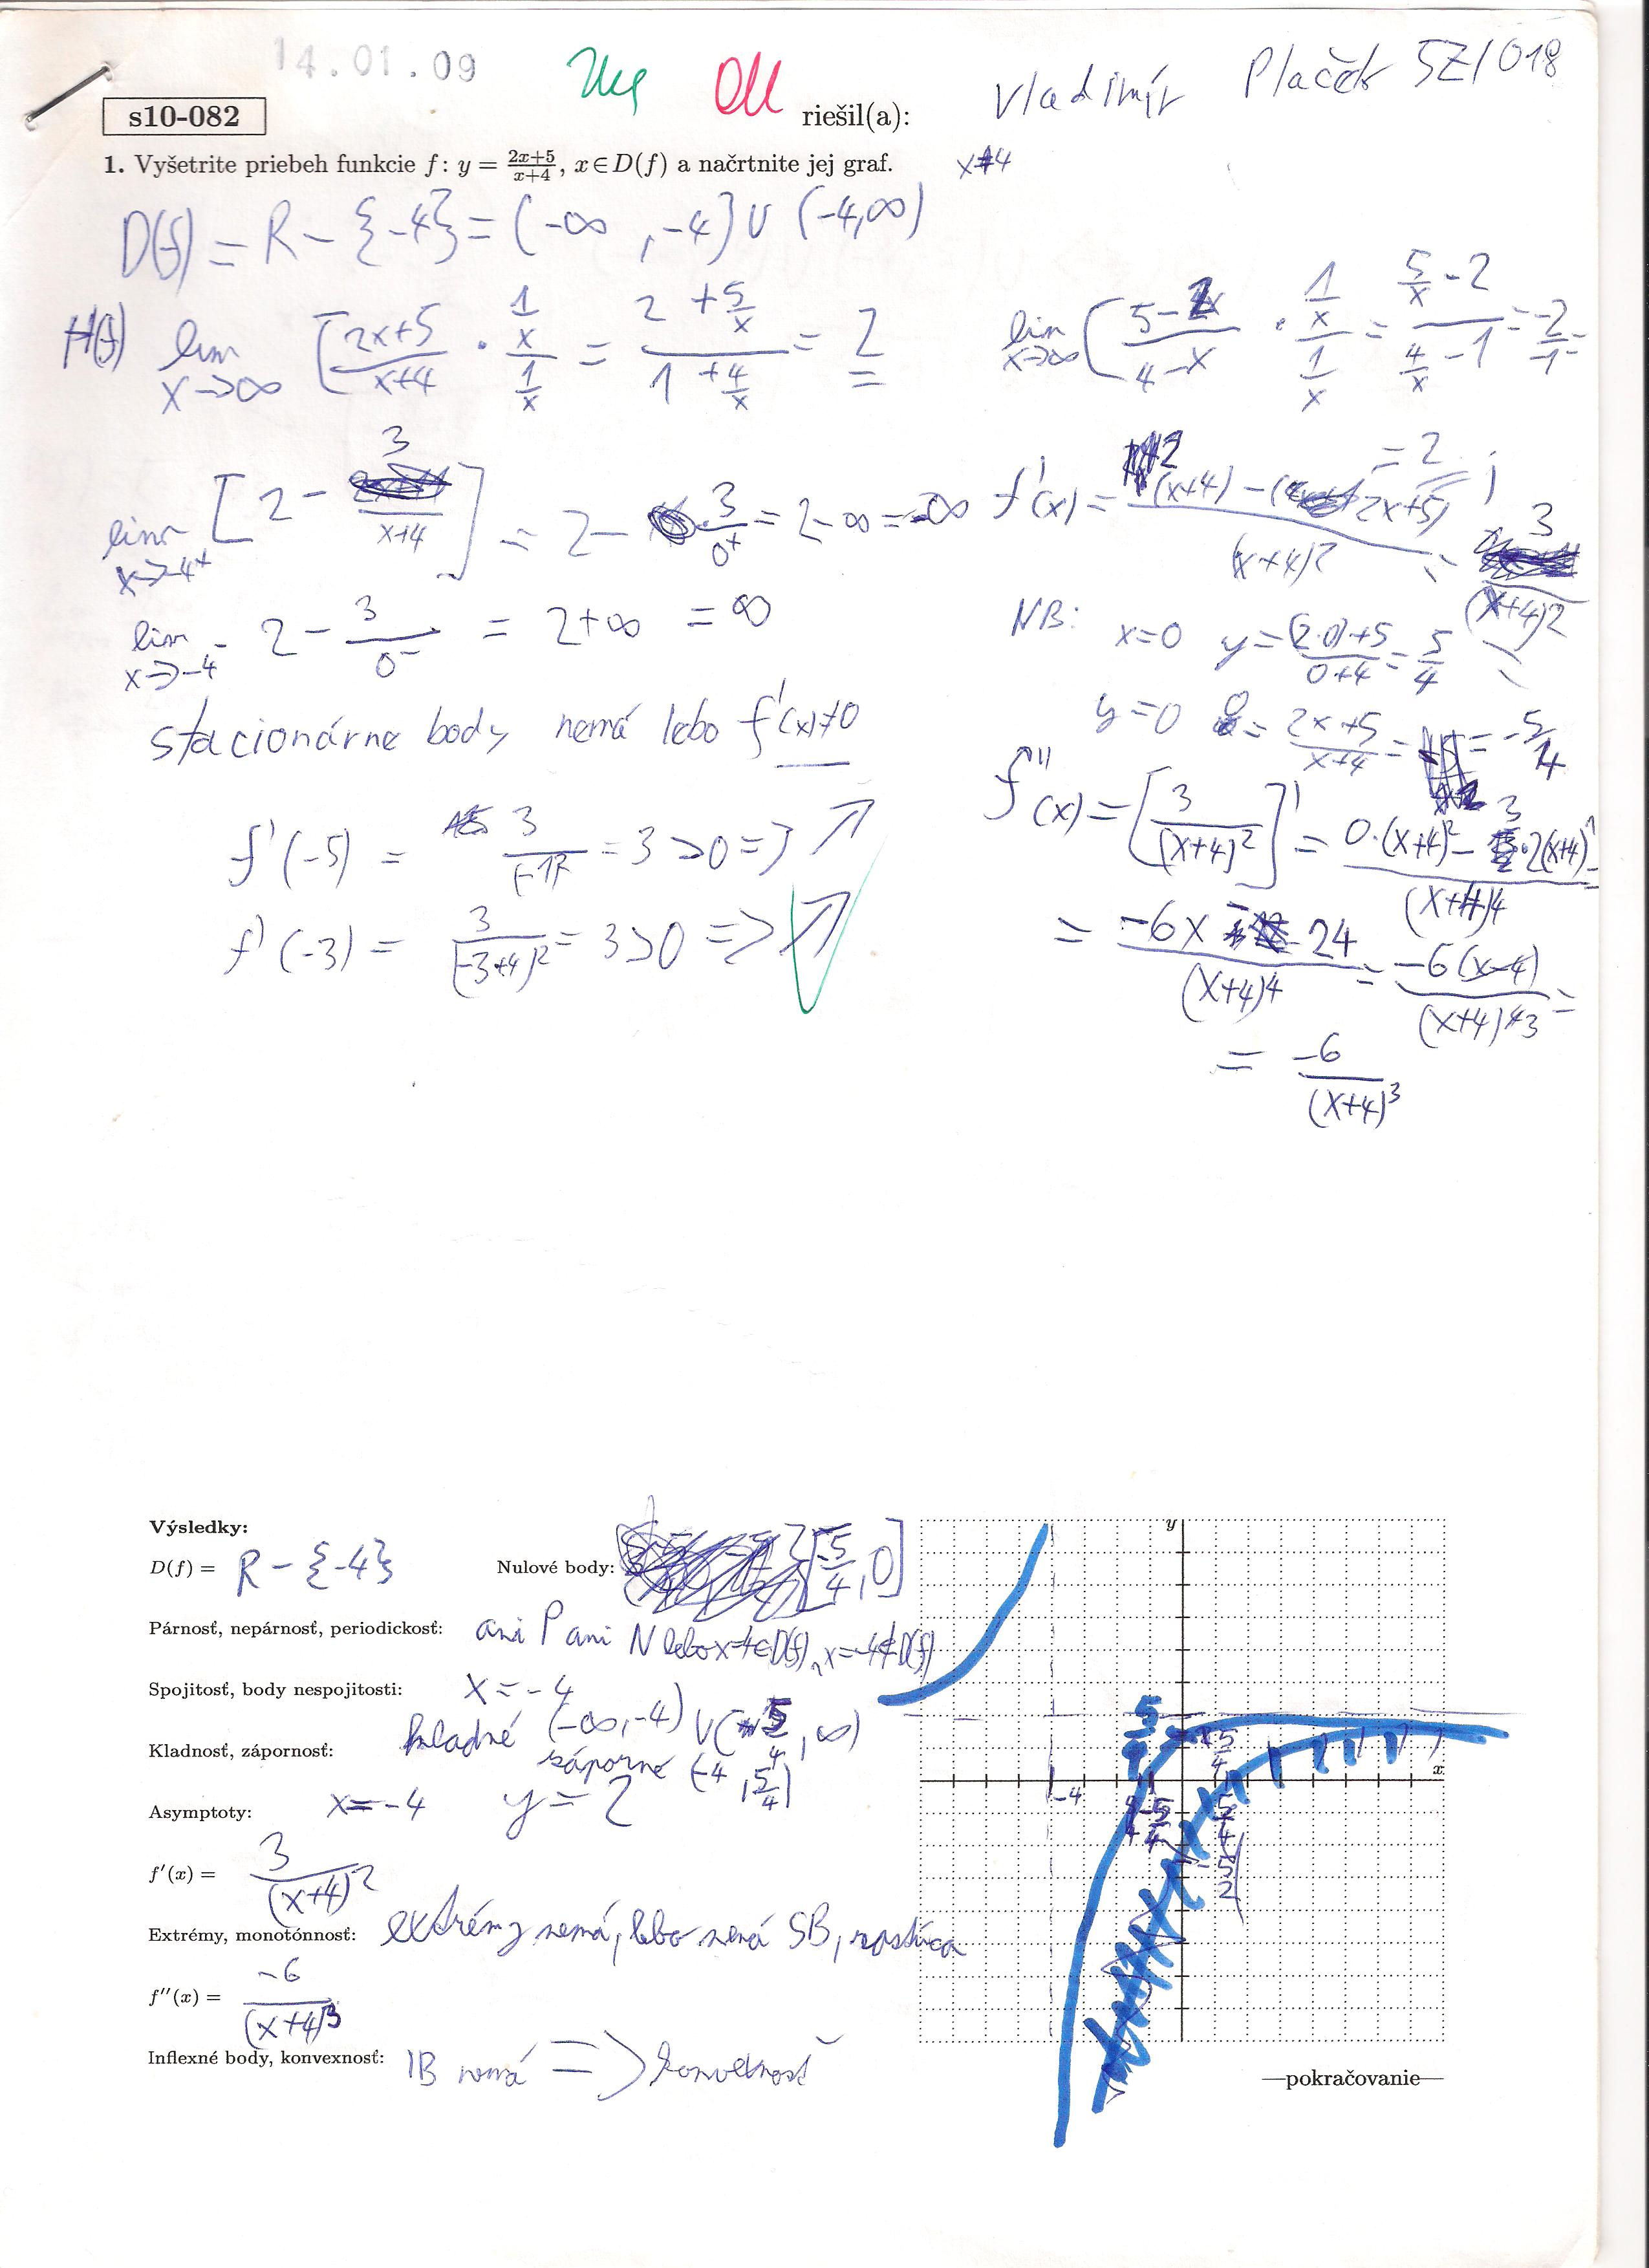 14.01.09
riešil(a): Vladimír Plaček 5Z/018
s10-082
1. Vyšetrite priebeh funkcie f: y = \frac{2x+5}{x+4}, x∈D(f) a načrtnite jej graf. x≠4
D(f) = R - {-4} = (-∞, -4) ∪ (-4, ∞)
H(f) lim x->∞ [\frac{2x+5}{x+4} · \frac{\frac{1}{x}}{\frac{1}{x}} = \frac{2+\frac{5}{x}}{1+\frac{4}{x}} = 2
lim x->∞ (\frac{5-2x}{4-x} · \frac{\frac{1}{x}}{\frac{1}{x}} = \frac{\frac{5}{x}-2}{\frac{4}{x}-1} = \frac{-2}{-1} =
= 2
lim x->-4+ [2 - \frac{3}{x+4}] = 2 - \frac{3}{0+} = 2-∞ = -∞
f'(x) = \frac{2(x+4)-(2x+5)}{(x+4)2} = \frac{3}{(x+4)2}
lim x->-4- 2 - \frac{3}{0-} = 2+∞ = ∞
NB: x=0 y = \frac{(2·0)+5}{0+4} = \frac{5}{4}
y=0 0 = \frac{2x+5}{x+4} = = -\frac{5}{4}
stacionárne body nemá lebo f'(x)≠0
f'(-5) = \frac{3}{(-1)²} = 3 >0 => ↗
f'(-3) = \frac{3}{(-3+4)²} = 3>0 => ↗
f''(x) = [\frac{3}{(x+4)²}]' = \frac{0·(x+4)²-3·2(x+4)¹}{(x+4)4} =
= \frac{-6x-24}{(x+4)4} = \frac{-6(x-4)}{(x+4)3} =
= \frac{-6}{(x+4)³}
Výsledky:
D(f) = R - {-4}
Nulové body: [\frac{-5}{4}, 0]
Párnosť, nepárnosť, periodickosť: ani P ani N lebo x=4∈D(f), x=-4∉D(f)
Spojitosť, body nespojitosti: x = -4
Kladnosť, zápornosť: kladné (-∞, -4) ∪ (-\frac{5}{4}, ∞)
záporné (-4, \frac{5}{4})
Asymptoty: x=-4 y=2
f'(x) = \frac{3}{(x+4)2}
Extrémy, monotónnosť: extrémy nemá, lebo nemá SB, rastúca
f''(x) = \frac{-6}{(x+4)3}
Inflexné body, konvexnosť: IB nemá => konvexnosť
y
x
-4
\frac{5}{4}
-\frac{5}{4}
\frac{5}{4}
-\frac{5}{2}
—pokračovanie—